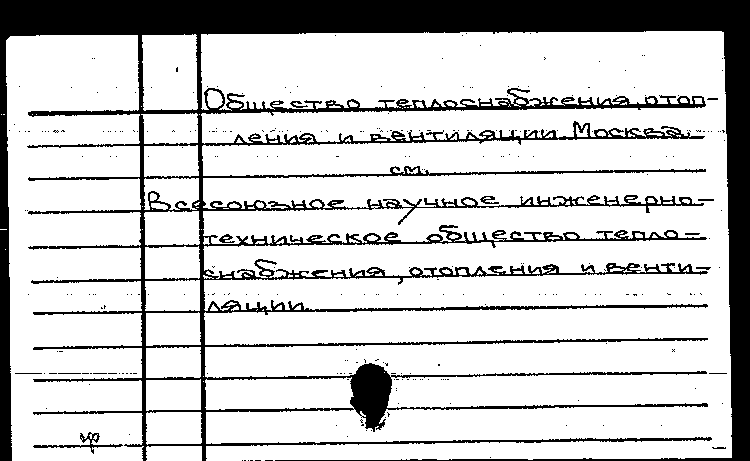 Общество теплоснабжения, отоп-
ления и вентиляции. Москва.
см.
Всесоюзное научное инженерно-
техническое общество тепло-
снабжения, отопления и венти-
ляции.